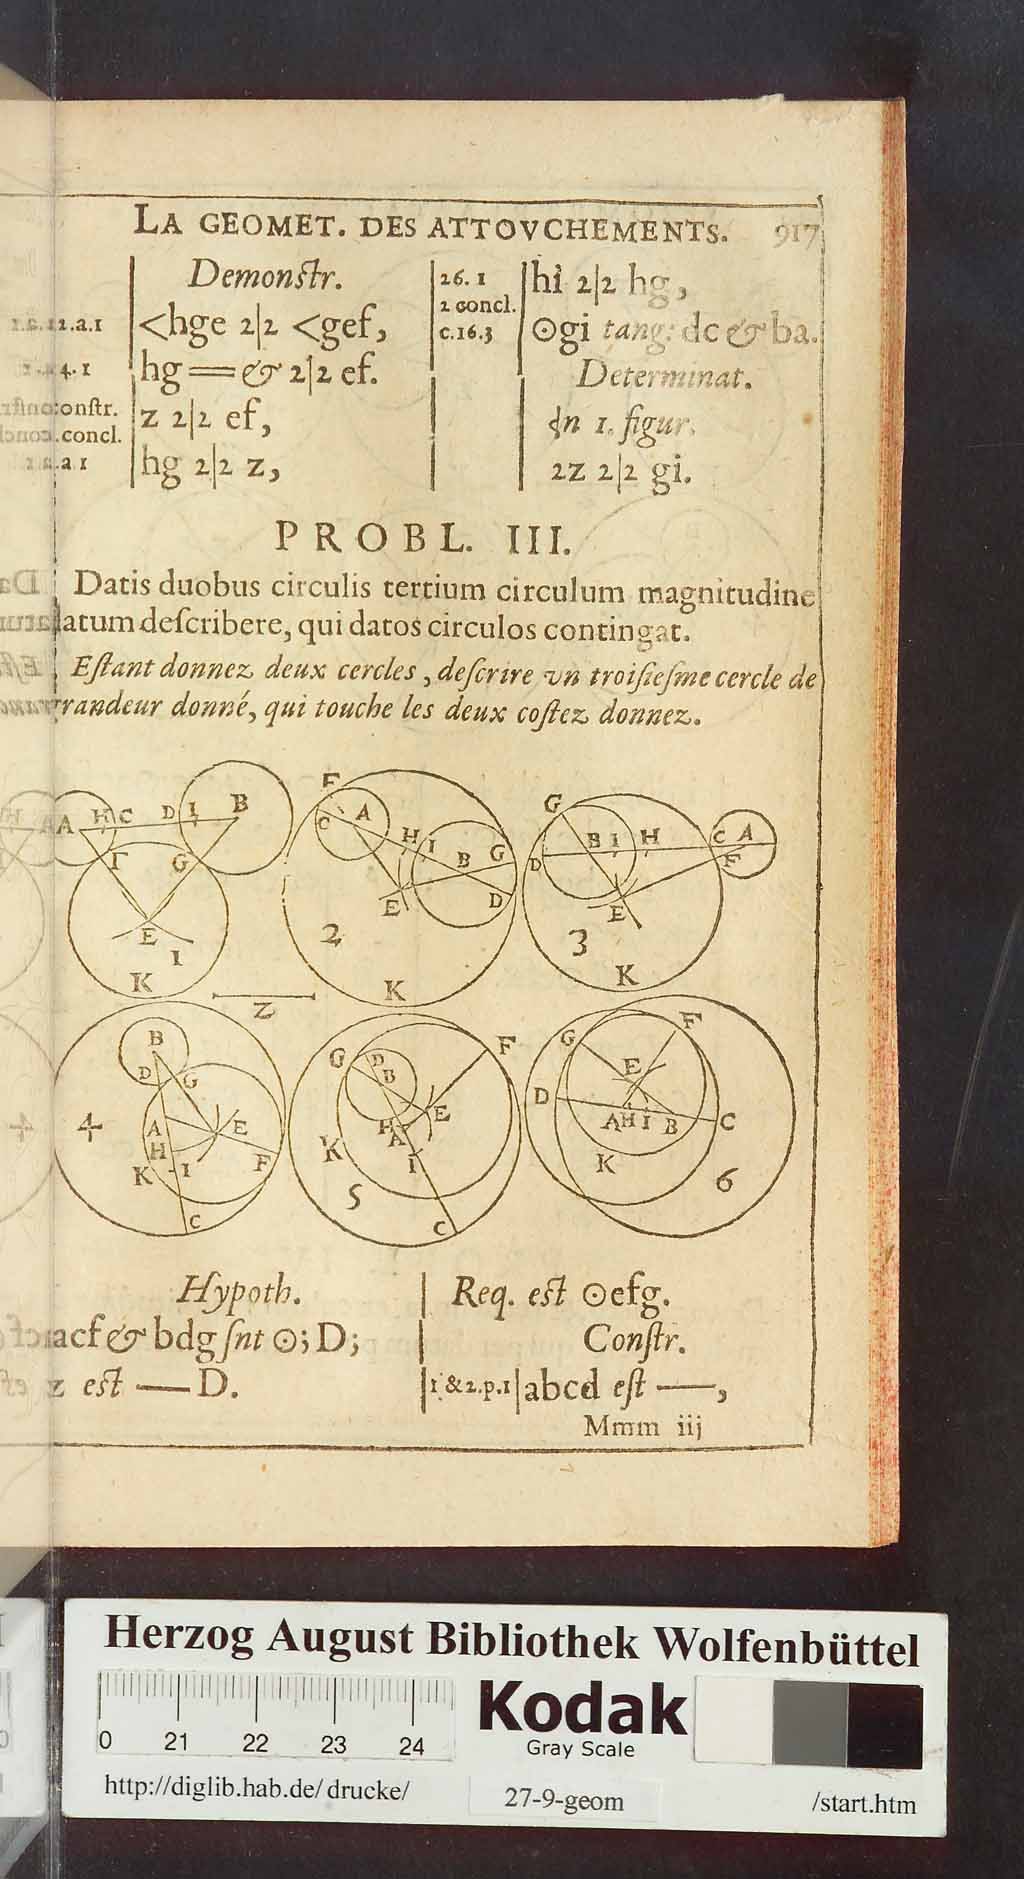 LA GEOMET. DES ATTOVCHEMENTS. 917
Demonstr.
1.2.a.1 <hge 2|2 <gef,
4.1 hg = & 2|2 ef.
constr. z 2|2 ef,
concl.
a 1 hg 2|2 z,
26. 1 hi 2|2 hg,
2 concl.
c.16.3 ⊙gi tang: dc & ba.
Determinat.
in 1. figur.
2z 2|2 gi.
PROBL. III.
Datis duobus circulis tertium circulum magnitudine
datum deſcribere, qui datos circulos contingat.
Eſtant donnez deux cercles, deſcrire vn troiſieſme cercle de
grandeur donné, qui touche les deux coſtez donnez.
A H C D I B
F G
E
1
K
F
C A H I B G
E D
2
K
G
D B I H C A
F
E
3
K
Z
B
D G
A E
H
K I F
C
4
G D F
B
E
H
A
K I
5
C
G F
E
D A H I B C
K
6
Hypoth.
acf & bdg ſnt ⊙; D;
z eſt — D.
Req. eſt ⊙efg.
Conſtr.
1 & 2.p.1 abcd eſt —,
Mmm iij
Herzog August Bibliothek Wolfenbüttel
0 21 22 23 24
Kodak
Gray Scale
http://diglib.hab.de/drucke/ 27-9-geom /start.htm